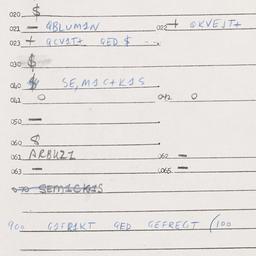 020 $
021 — GBLUM1N 022 + GKVE1T+
023 + GCV1T+ GED $ -..
030 $
040 $ SE,M1C+K1S
041 0 042 0
050 —
060 &
061 ARBUZ1 062 —
063 — 065 —
070 SEM1CK1S
900 GIFRIKT GED GEFREGT (100